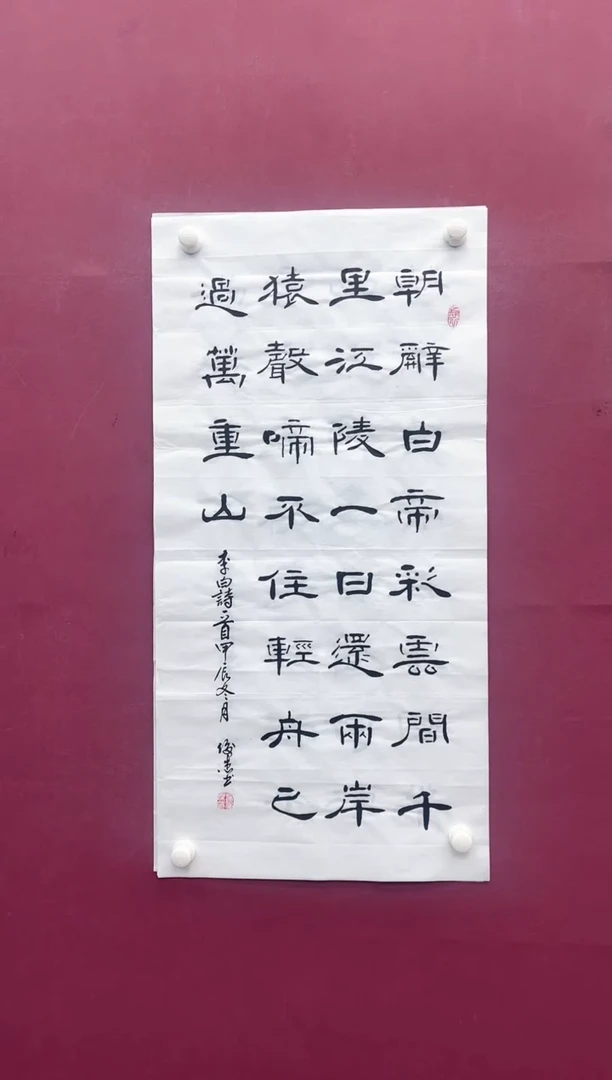 朝辭白帝彩雲間千
里江陵一日還兩岸
猿聲啼不住輕舟已
過萬重山
李白詩一首甲辰冬月 俊杰书